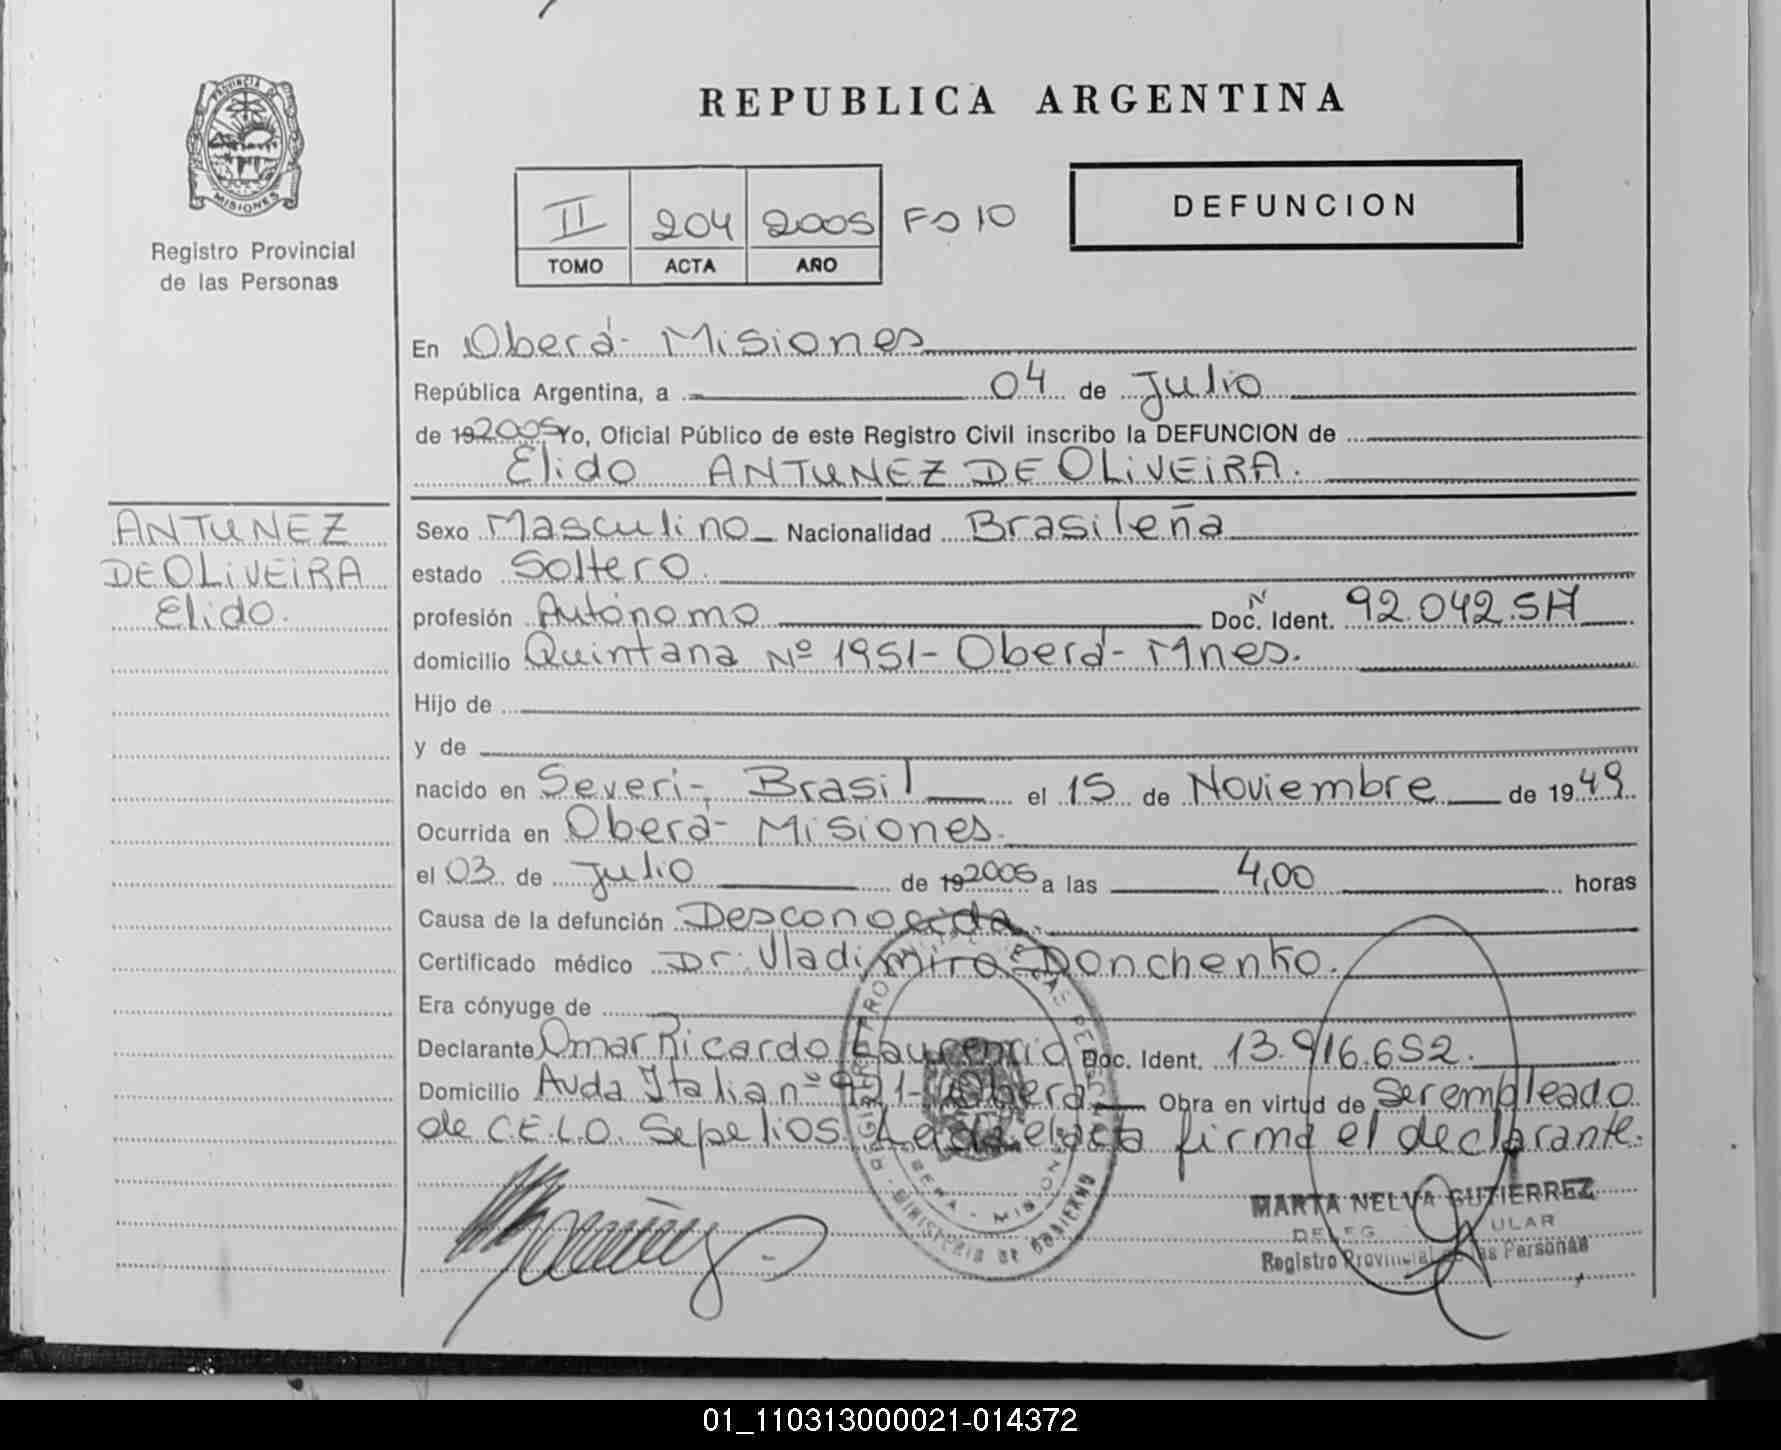 PROVINCIA DE
MISIONES
Registro Provincial
de las Personas
REPUBLICA ARGENTINA
II 204 2005 Fo 10
TOMO ACTA AÑO
DEFUNCION
En Oberá - Misiones
República Argentina, a 04 de Julio
de 192005 Yo, Oficial Público de este Registro Civil inscribo la DEFUNCION de
Elido ANTUNEZ DE OLIVEIRA.
ANTUNEZ
DE OLIVEIRA
Elido.
Sexo Masculino Nacionalidad Brasileña
estado Soltero.
profesión Autónomo Doc. Ident. Nº 92.042.517
domicilio Quintana Nº 1951 - Oberá - Mnes.
Hijo de
y de
nacido en Severi -, Brasil el 15 de Noviembre de 1949
Ocurrida en Oberá - Misiones.
el 03 de Julio de 192005 a las 4,00 horas
Causa de la defunción Desconocida.
Certificado médico Dr. Vladimiro Donchenko.
Era cónyuge de
Declarante Omar Ricardo Laurencio Doc. Ident. 13.916.652.
Domicilio Avda Italia nº 921 - Oberá Obra en virtud de ser empleado
de C.E.L.O. Sepelios. Leída el acta firma el declarante.
MINISTERIO DE GOBIERNO
OBERA - MISIONES
MARTA NELVA GUTIERREZ
Registro Provincial de las Personas
01_110313000021-014372